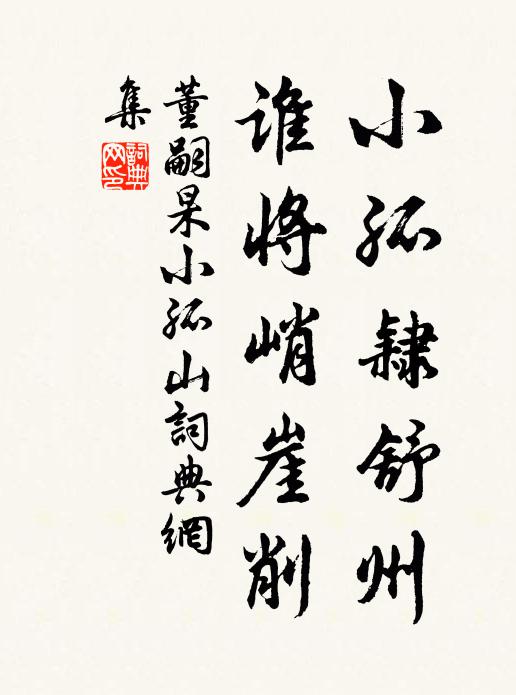 小孤隸舒州
誰將峭崖削
董嗣杲小孤山詞典網
集
詞典
网印